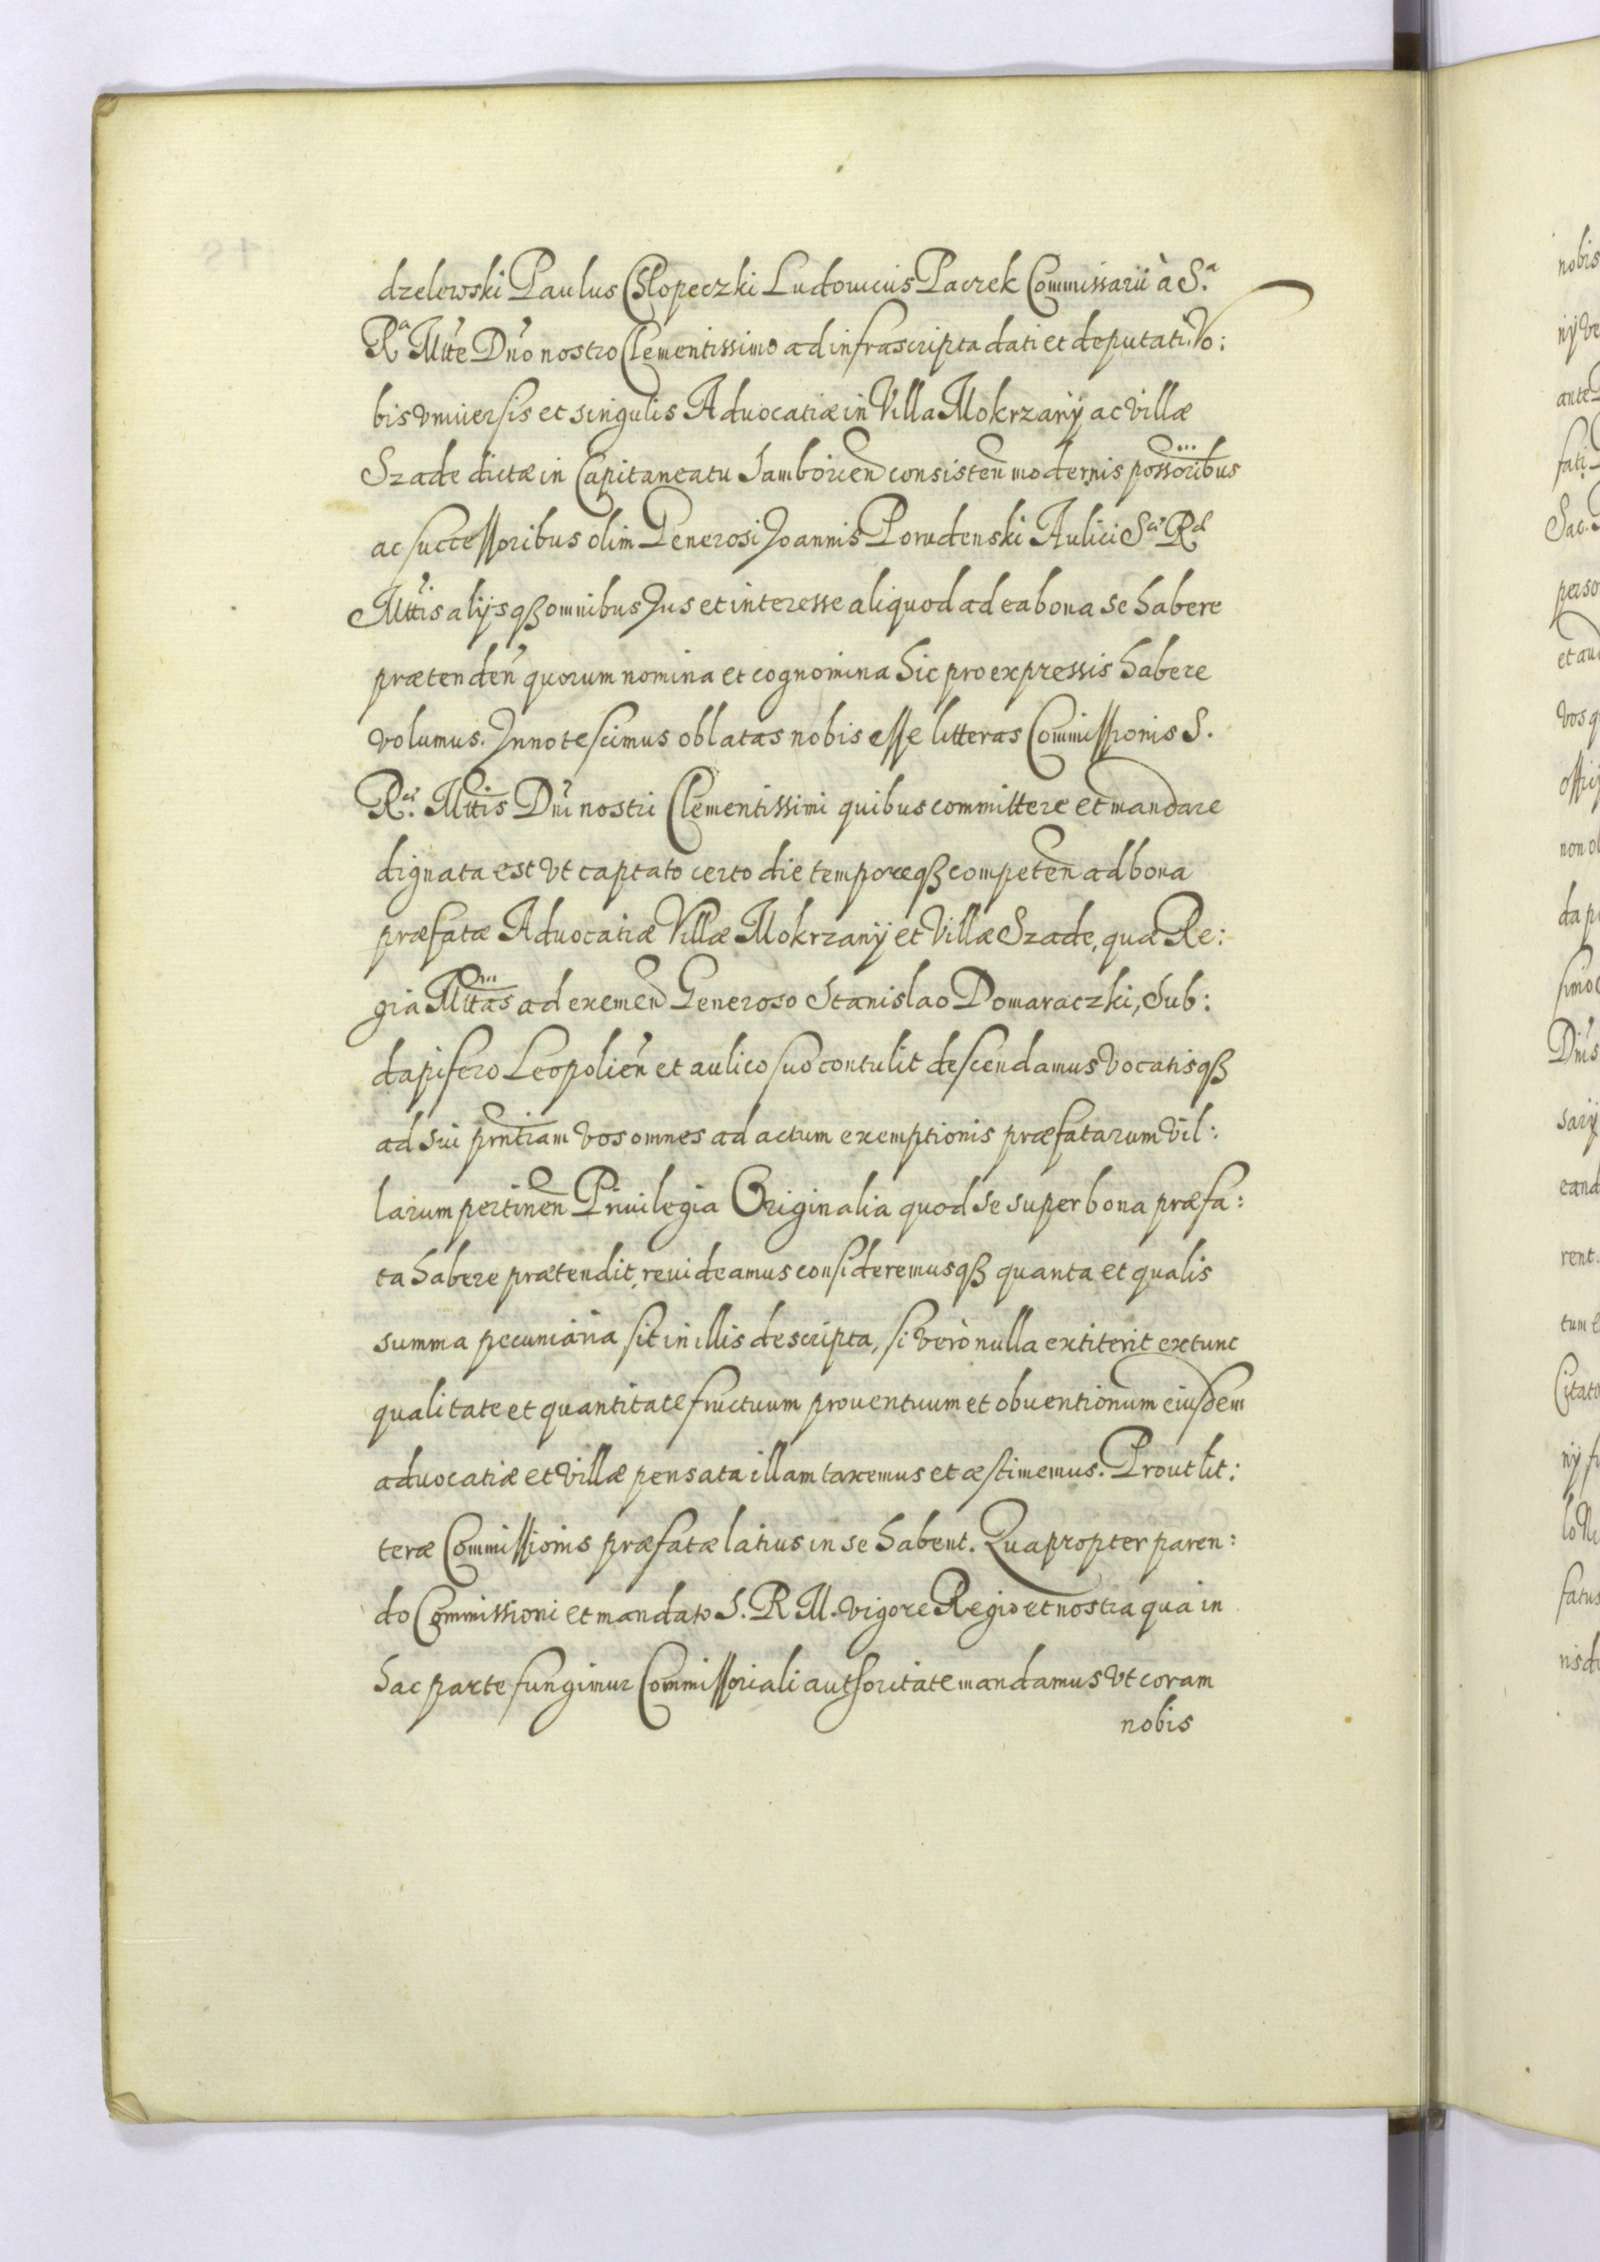 dzelewski Paulus Chłopeczki Ludouicus Paczek Commissarii à S.ª
R.ª Mtte Dn̄o nostro Clementissimo ad infrascripta dati et deputati. Vo:
bis vniuersis et singulis Aduocatiæ in Villa Mokrzany ac villæ
Szade dictæ in Capitaneatu Samborien̄ consisten̄ modernis possoribus
ac successoribus olim Generosi Joannis Porudenski Aulici S.æ R.æ
Mttis alijsqß omnibus Jus et interesse aliquod ad ea bona se habere
prætenden̄ quorum nomina et cognomina hic pro expressis habere
volumus. Innotescimus oblatas nobis esse litteras Commissionis S.
R.æ Mttis Dn̄i nostri Clementissimi quibus committere et mandare
dignata est vt captato certo die temporeqß competen̄ ad bona
præfatæ Aduocatiæ Villæ Mokrzany et Villæ Szade, quæ Re:
gia Mttas ad exemen̄ Generoso Stanislao Domaraczki, Sub:
dapifero Leopolien̄ et aulico suo contulit descendamus vocatisqß
ad sui pn̄tiam vos omnes ad actum exemptionis præfatarum vil:
larum pertinen̄ Priuilegia Originalia quod se super bona præfa:
ta habere prætendit, reuideamus consideremusqß quanta et qualis
summa pecuniaria sit in illis descripta, si verò nulla extiterit extunc
qualitate et quantitate fructuum prouentuum et obuentionum eiusdem
aduocatiæ et villæ pensata illam taxemus et æstimemus. Prout lit:
teræ Commissionis præfatæ latius in se habent. Quapropter paren:
do Commissioni et mandato S. R. M. vigore Regio et nostra qua in
hac parte fungimur Commissoriali authoritate mandamus vt coram
nobis